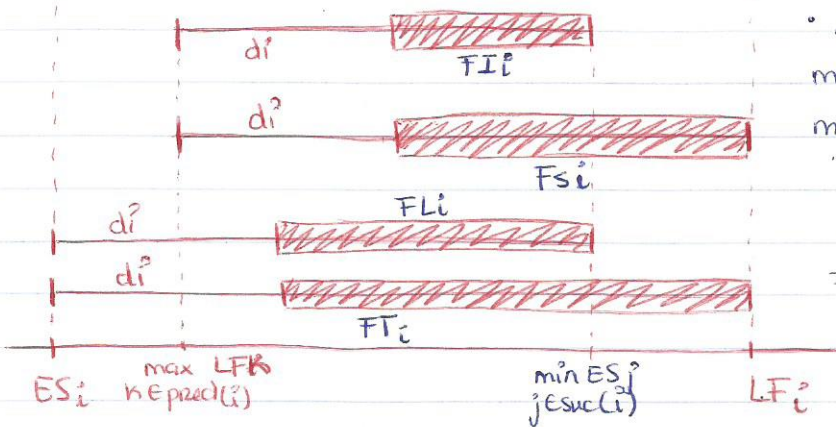 di
FIi
m
di
m
FSi
FLi
di
di
FTi
ESi
max LFk
k∈pred(i)
min ESj
j∈suc(i)
LFi